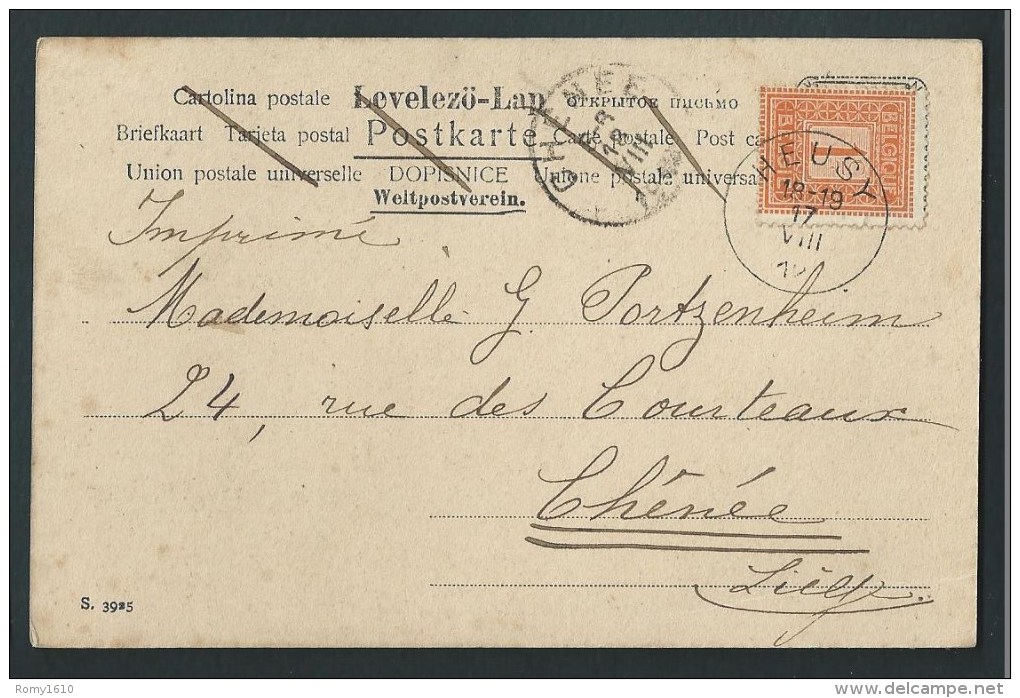 Cartolina postale Levelező-Lap ОТКРЫТОЕ ПИСЬМО
Briefkaart Tarjeta postal Postkarte Carte postale Post ca
Union postale universelle DOPISNICE Unione postale universa
Weltpostverein.
CHÊNÉE
18
VIII
BELGIQUE
1
HEUSY
18-19
17
VIII
Imprimé
Mademoiselle G. Portzenheim
24, rue des Courteaux
Chênée
Liége
S. 3925
Romy1610
delcampe.net